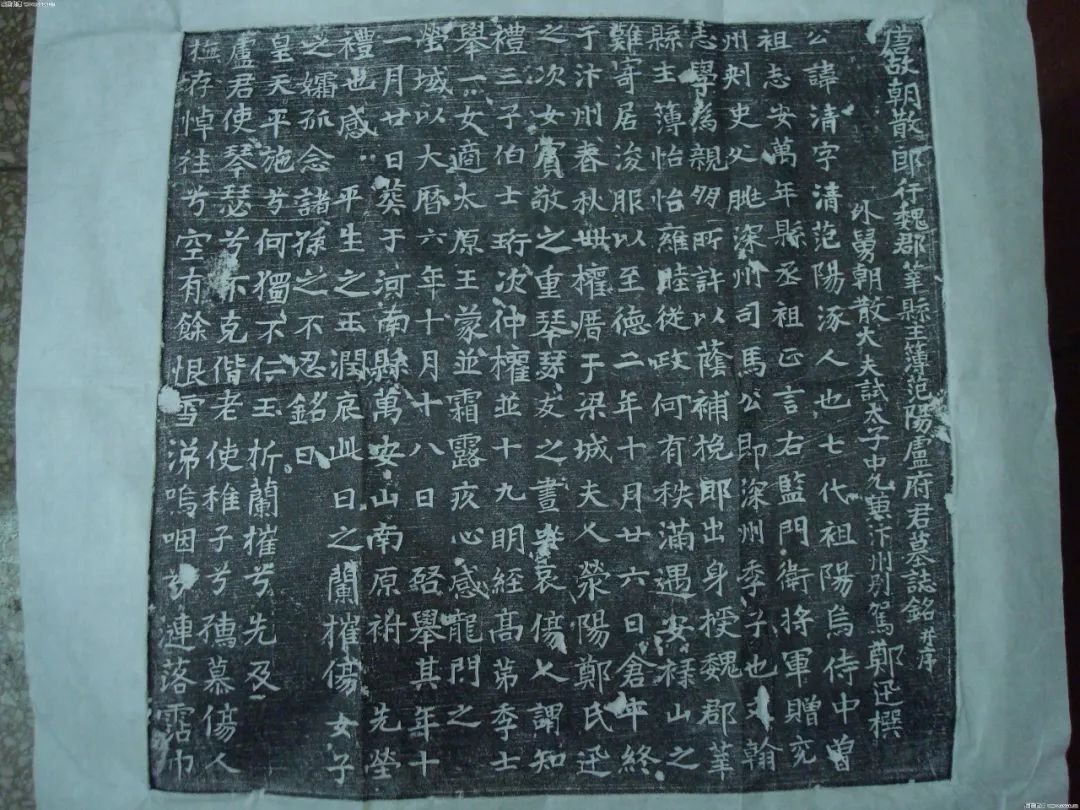 唐故朝散郎行魏郡莘縣主薄范陽盧府君墓誌銘并序
外舅朝散大夫試太子中允兼汴州別駕鄭迅撰
公諱清字清范陽涿人也七代祖陽烏侍中曾
祖志安萬年縣丞祖正言右監門衛將軍贈兗
州刾史父朓深州司馬公即深州季子也文翰
志學為親多所許以蔭補挽郎出身授魏郡莘
縣主薄怡怡雍睦從政何有秩滿遇安祿山之
難寄居浚服以至德二年十月廿六日倉卒終
于汴州春秋卌權厝于梁城夫人滎陽鄭氏迅
之次女賓敬之重琴瑟友之晝哭哀傷人謂知
禮三子伯士珩次仲權並十九明經高第季士
舉一女適太原王蒙並霜露疚心感龍門之
塋域以大曆六年十月十八日啓舉其年十
一月廿日葬于河南縣萬安山南原祔先塋
禮也感平生之玉潤哀此日之蘭摧傷女子
之孀孤念諸孫之不忍銘曰
皇天平施兮何獨不仁玉折蘭摧兮先及
盧君使琴瑟兮不克偕老使稚子兮孺慕傷人
撫存悼往兮空有餘恨雪涕嗚咽兮漣落霑巾